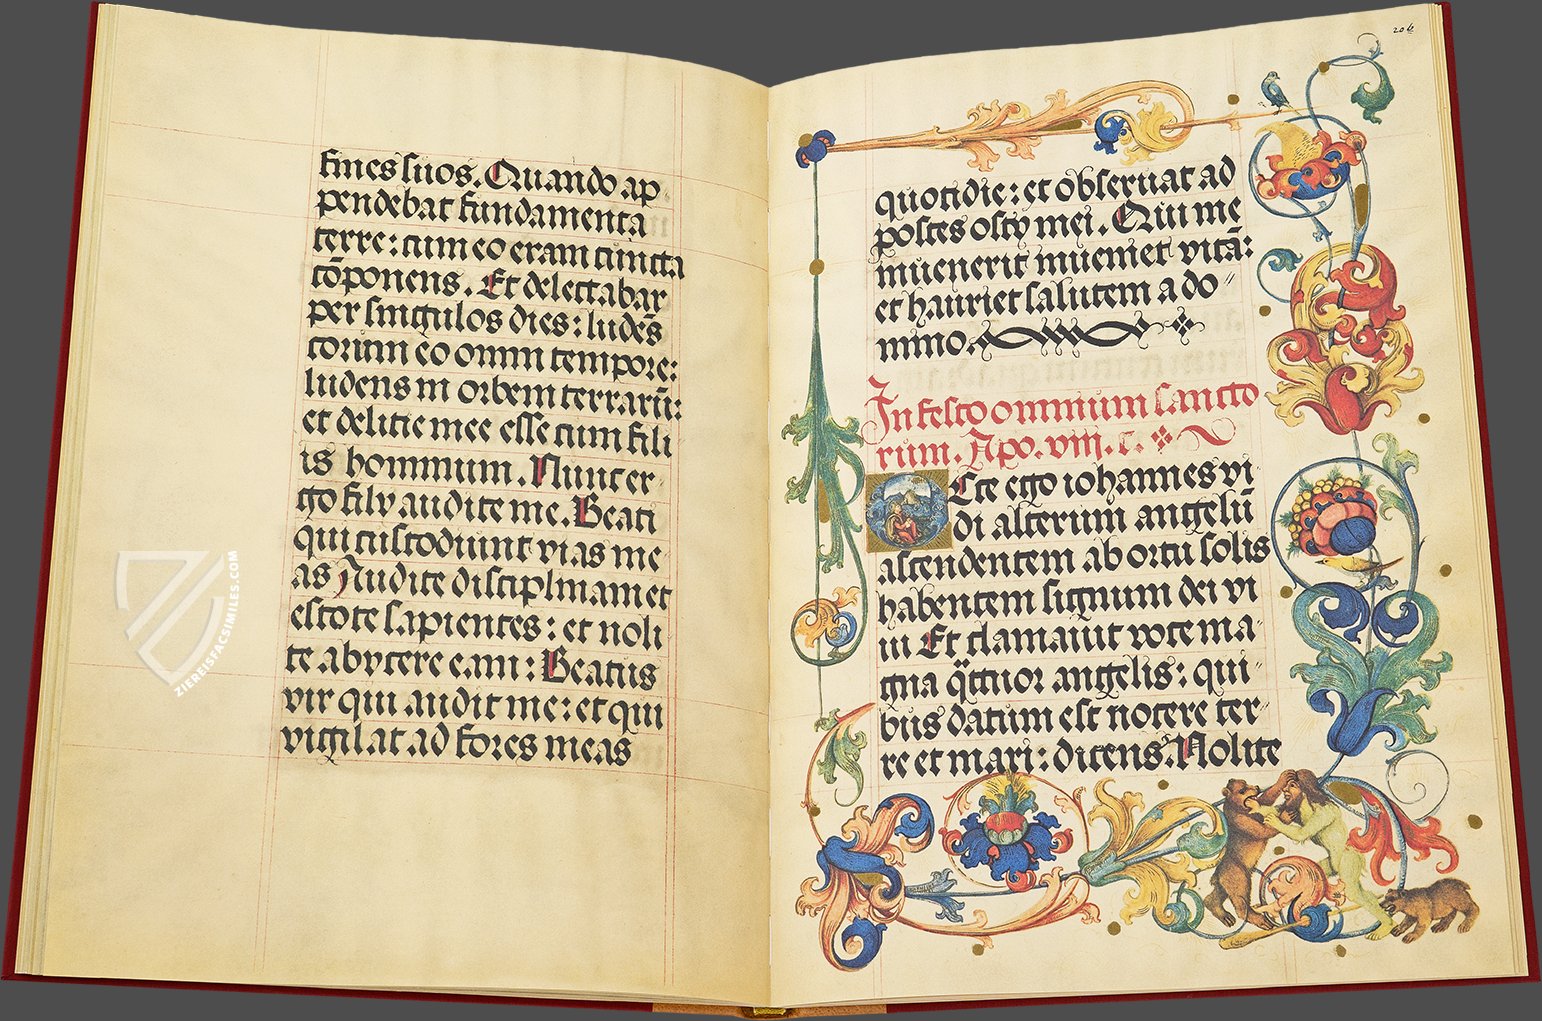 fines suos. Quando ap
pendebat fundamenta
terre: cum eo eram cuncta
cōponens. Et delectabar
per singulos dies: ludēs
coram eo omni tempore:
ludens in orbem terrarū:
et delicie mee esse cum fili
is hominum. Nunc er
go filij audite me. Beati
qui custodiunt vias me
as Audite disciplinam et
estote sapientes: et noli
te abycere eam: Beatus
vir qui audit me: et qui
vigilat ad fores meas
ZIEREISFACSIMILES.COM
206
quotidie: et observat ad
postes ostij mei. Qui me
invenerit inveniet vitā:
et hauriet salutem a do
mino.
In festo omnium sancto
rum. Apo. viii. c.
Ecce ego iohannes vi
di alterum angelū
ascendentem ab ortu solis
habentem signum dei vi
ui Et clamavit voce ma
gna q̄ttuor angelis: qui
bus datum est nocere ter
re et mari: dicens. Nolite